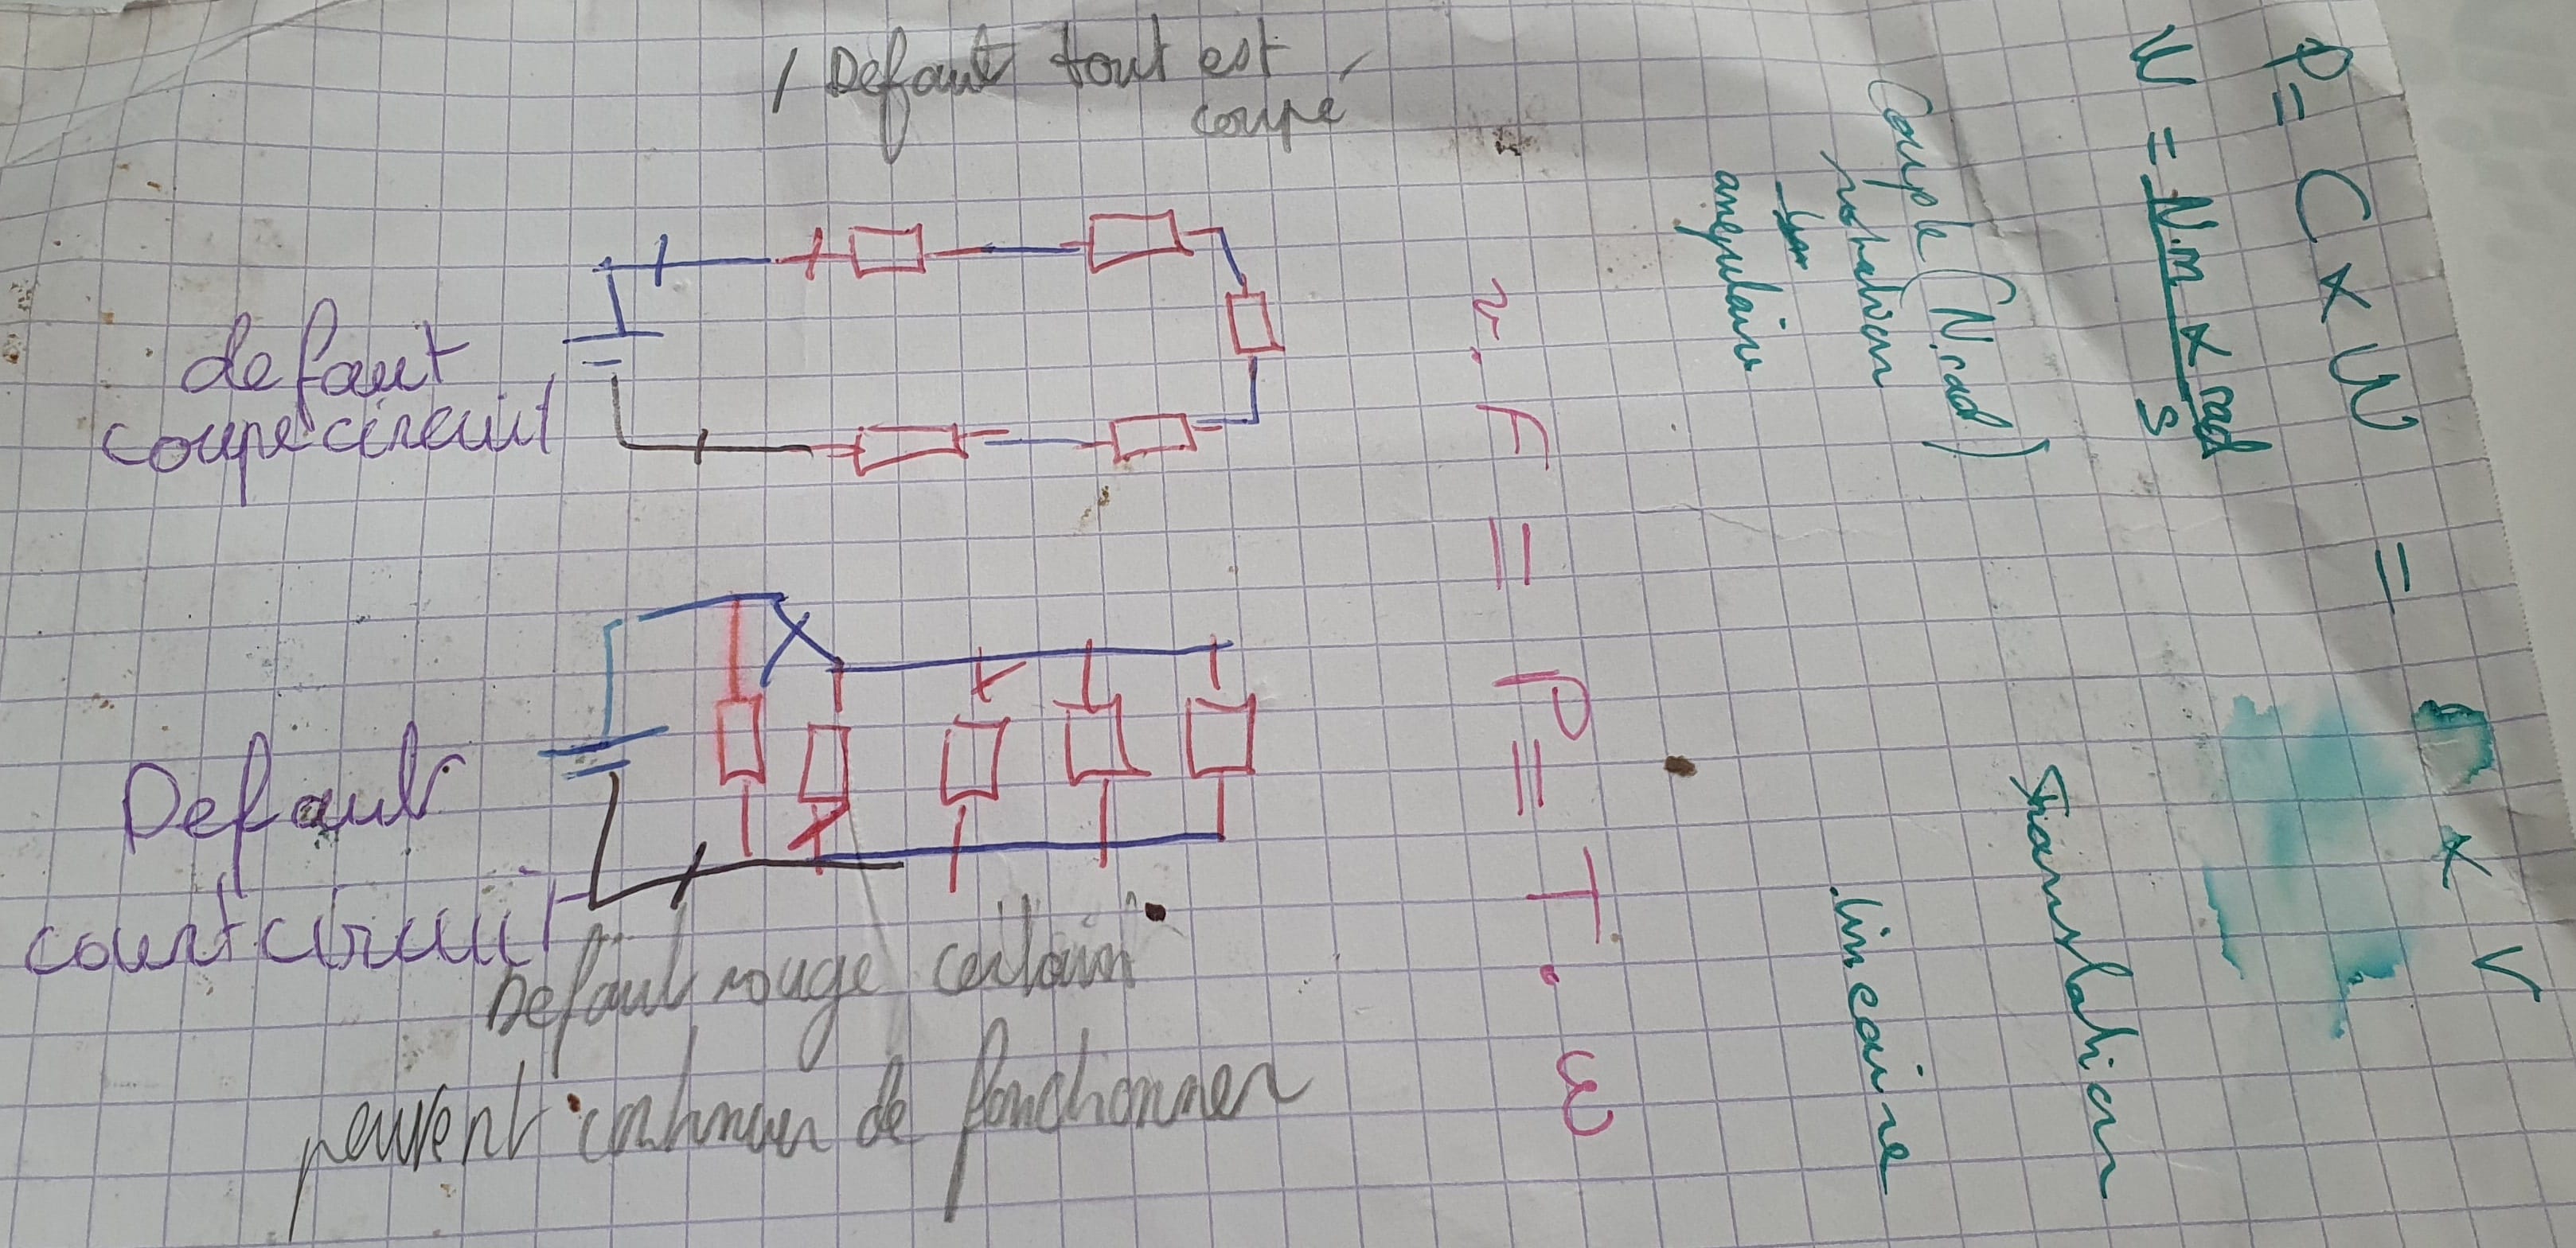 1 Défaut tout est
coupé
defaut
coupe circuit
Defaut
court circuit
Defaut rouge certain
peuvent continuer de fonctionner
v. F = P = T. ω
P = C × W = × V
W = N.m × rad
s
Couple (N.rad)
rotation
angulaire
Translation
linéaire